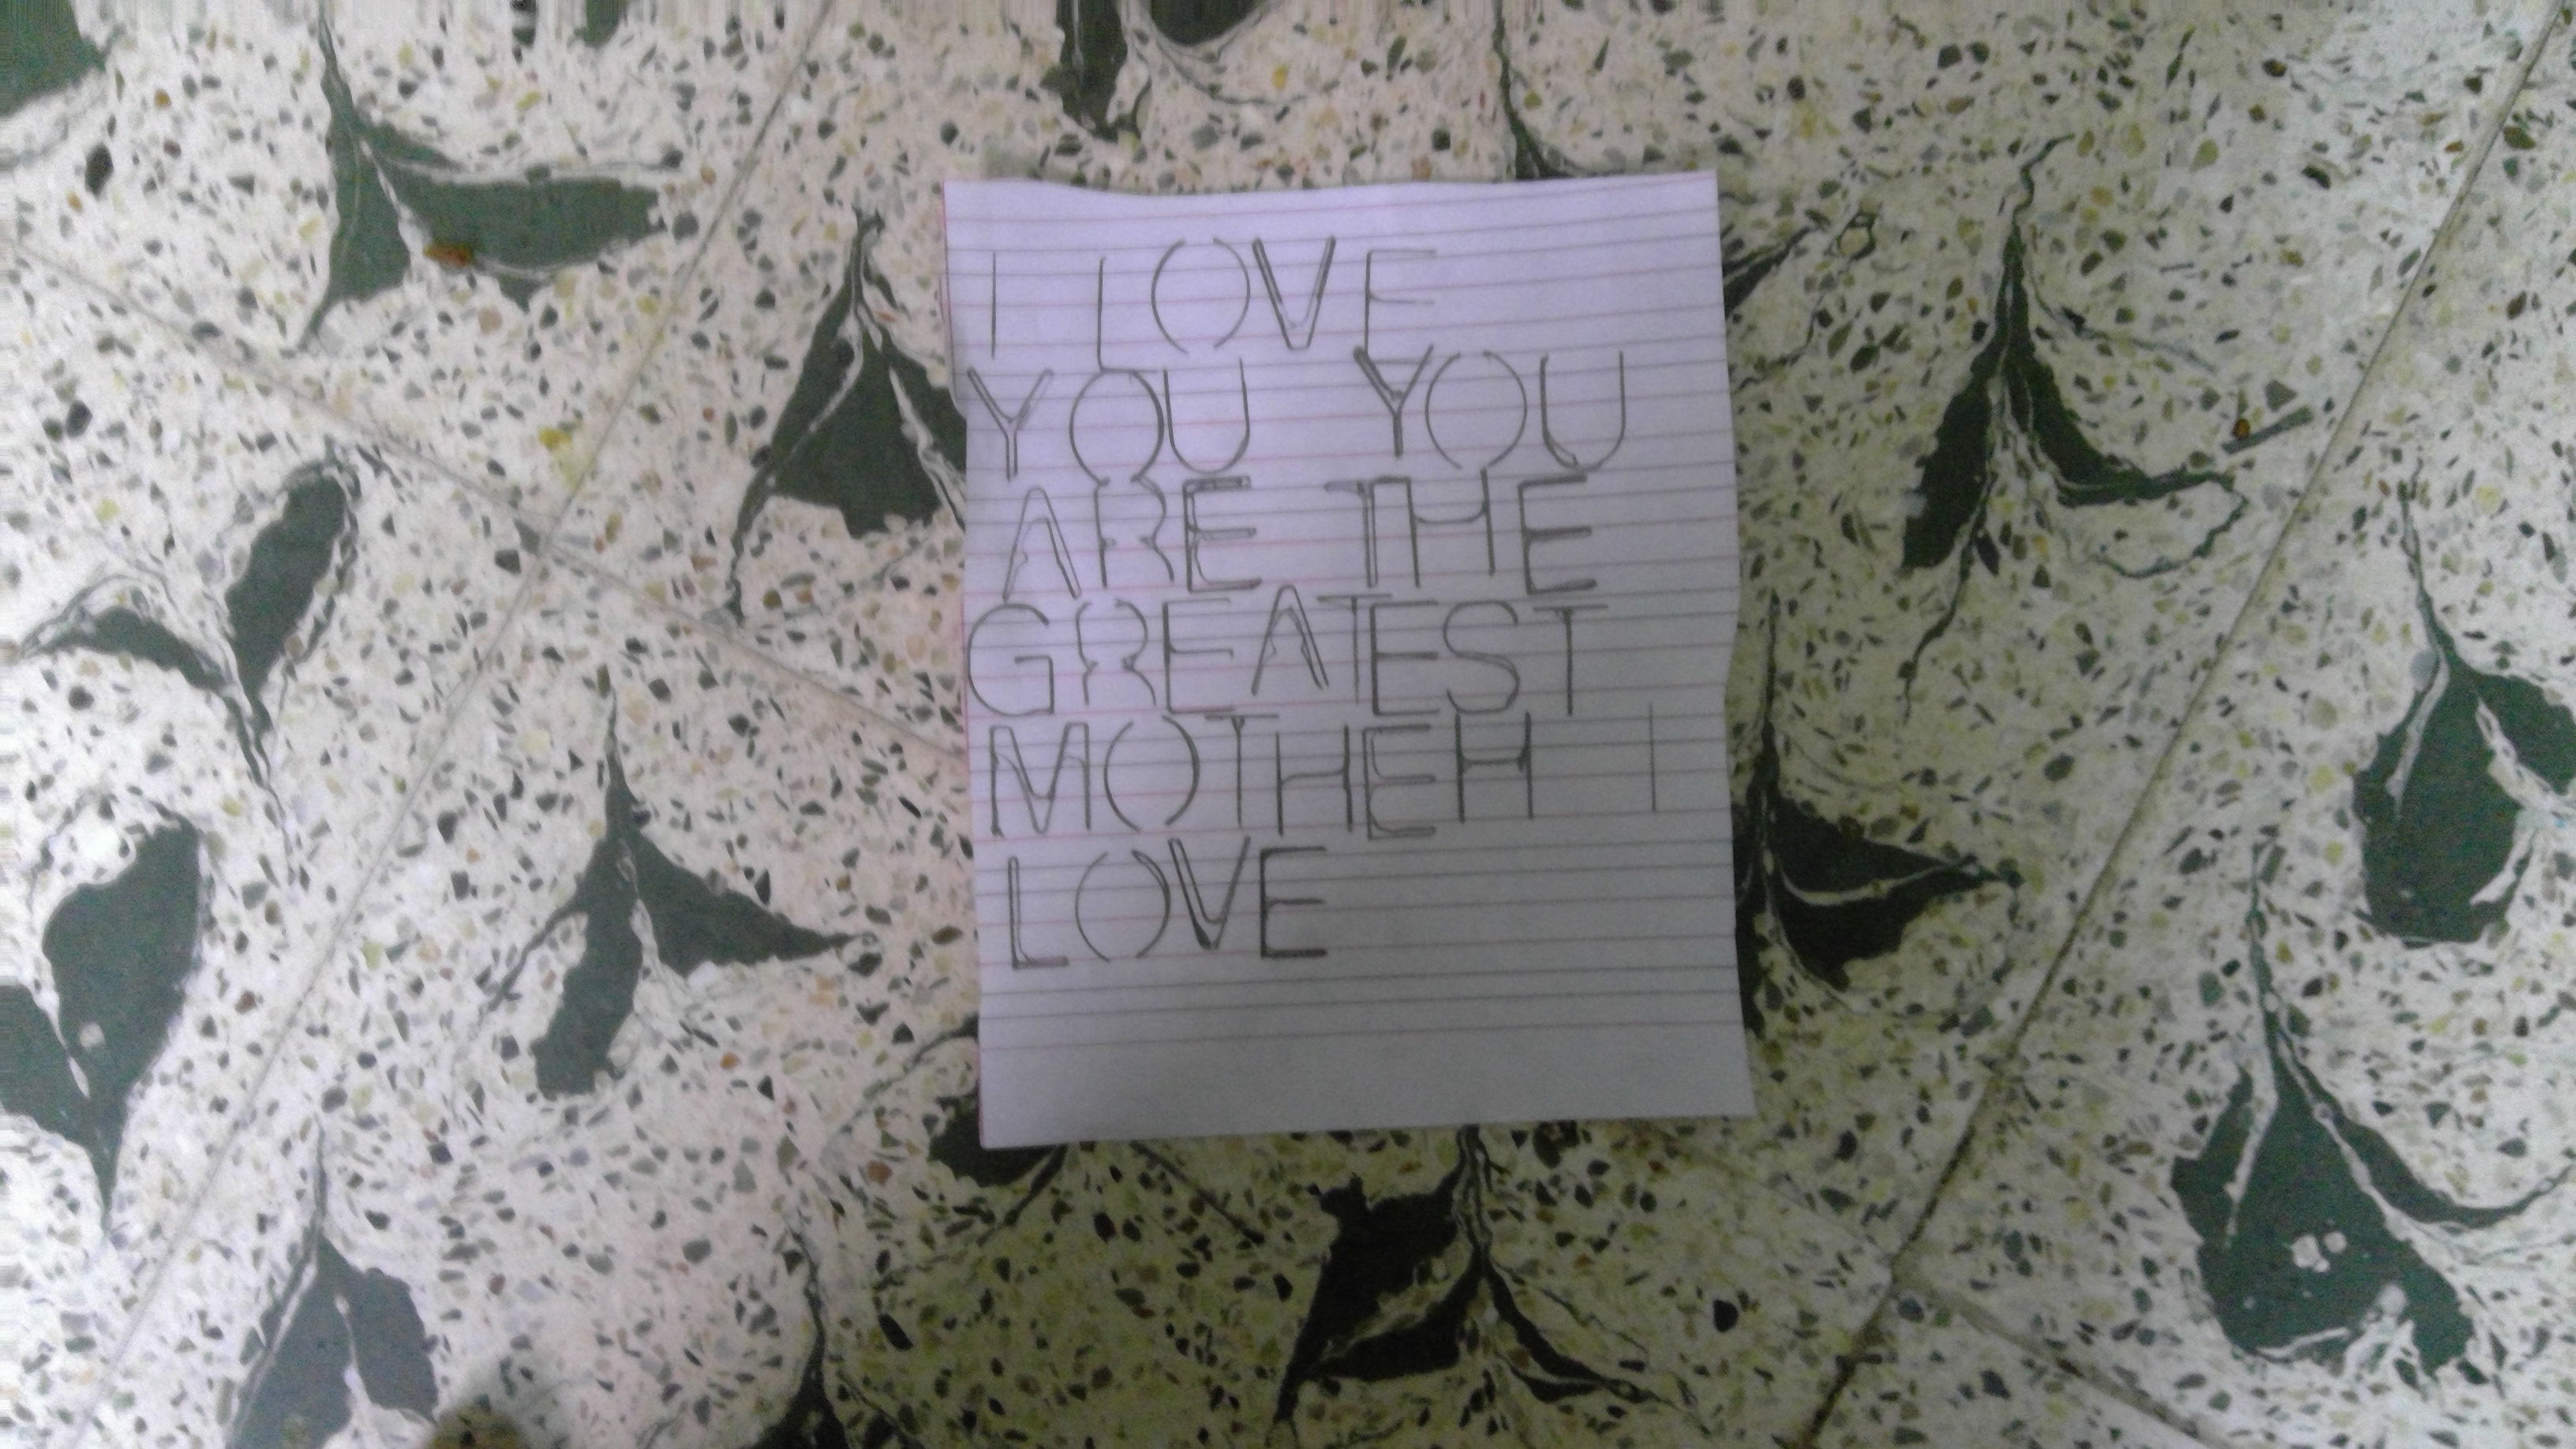 I LOVE
YOU YOU
ARE THE
GREATEST
MOTHEH I
LOVE